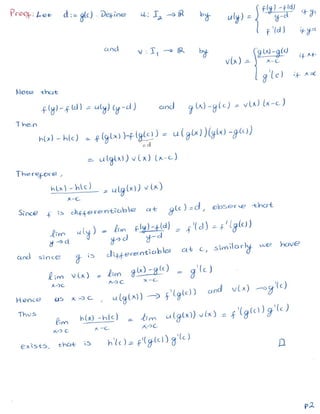 Proof: Let d := g(c). Define u: I₂ → ℝ by u(y) = { f(y) - f(d) / y-d if y
f'(d) if y=
and v: I₁ → ℝ by v(x) = { g(x) - g(c) / x-c if x≠
g'(c) if x=c
Note that
f(y) - f(d) = u(y)(y-d) and g(x) - g(c) = v(x)(x-c)
Then
h(x) - h(c) = f(g(x)) - f(g(c)) = u(g(x))(g(x) - g(c))
=d
= u(g(x)) v(x) (x-c)
Therefore,
h(x) - h(c) / x-c = u(g(x)) v(x)
Since f is differentiable at g(c)=d, observe that
lim y→d u(y) = lim y→d f(y) - f(d) / y-d = f'(d) = f'(g(c))
and since g is differentiable at c, similarly we have
lim x→c v(x) = lim x→c g(x) - g(c) / x-c = g'(c)
Hence as x→c, u(g(x)) → f'(g(c)) and v(x) → g'(c)
Thus
lim x→c h(x) - h(c) / x-c = lim x→c u(g(x)) v(x) = f'(g(c)) g'(c)
exists, that is h'(c) = f'(g(c)) g'(c) □
P2